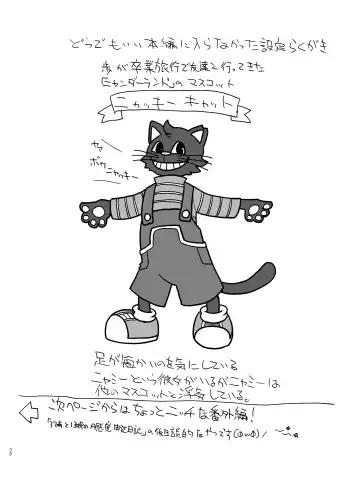 どうでもいい本編に入らなかった設定らくがき
歩が卒業旅行で友達と行ってきた
「ニャンダーランド」のマスコット
ニャッキーキャット
ヤァ
ボク
ニャッキー
足が短かいのを気にしている
ニャミーという彼女がいるがニャミーは
他のマスコットと浮気している。
次ページからはちょっとニッチな番外編!
の後日談的なやつです(ΦωΦ)ノ